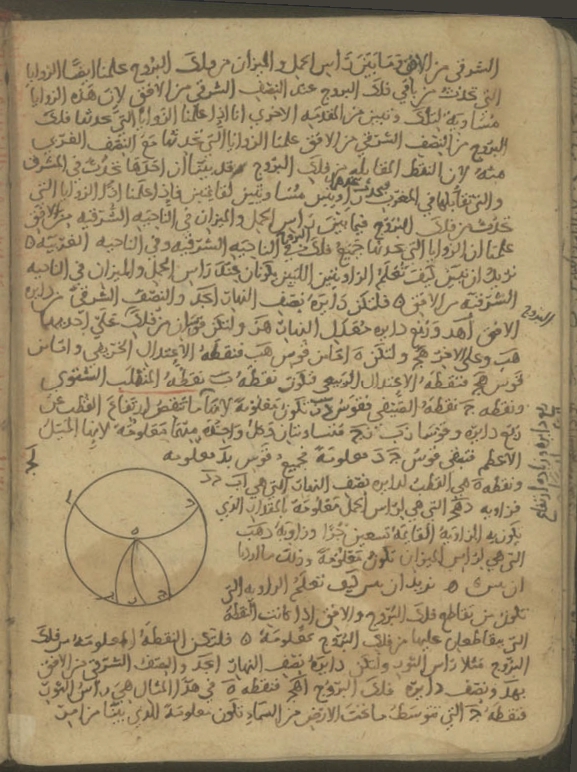 الشرقى من الافق وما بين راس الحمل والميزان من فلك البروج علمنا ايضا الزوايا
التى تحدث من باقى فلك البروج عند النصف الشرقى من الافق لان هذه الزوايا
مساوية لتلك ونبين من المقدمه الاخرى انا اذا علمنا الزوايا التى يحدثها فلك
البروج مع النصف الشرقى من الافق علمنا الزوايا التى يحدثها مع النصف الغربى
منه لان النقط المقابله من فلك البروج قد بينا ان احدها تحدث فى المشرق
والتى تقابلها فى المغرب زاويتين مساويتين لقائمتين فاذا علمنا اذا الزوايا التى
تحدث من فلك البروج فيما بين راس الحمل والميزان فى الناحيه الشرقيه من الافق
علمنا ان الزوايا التى يحدثها جميع فلك البروج فى الناحيه الشرقيه وفى الناحيه الغربيه ه
نريد ان نبين كيف تعلم الزاويتين اللتين يكونان عند راس الحمل والميزان فى الناحيه
الشرقيه من الافق ه فلتكن دايره نصف النهار ابجد والنصف الشرقى من دايره
البروج
الافق اهد وربع دايره معدل النهار هز ولتكن قوسان من فلك على احديهما
هب وعلى الاخرى هج ولتكن ه اما من قوس هب فنقطه الاعتدال الخريفى واما من
قوس هج فنقطه الاعتدال الربيعى فتكون نقطه ب نقطه المنقلب الشتوى
ونقطه ج نقطه الصيفى فقوس دز تكون معلومه لانها ما تنقص ارتفاع القطب عن
ربع دايره وقوسا زب زج متساويتان وكل واحده منهما معلومه لانها الميل
الاعظم فتبقى قوس جد معلومة وجميع قوس بد معلومه
ونقطه ه هى القطب لدايره نصف النهار التى هى اب جد
فزاويه دهج التى هى لراس الحمل معلومه بالمقدار الذى
تكون به الزاويه القايمه تسعين جزا وزاويه دهب
التى هى لراس الميزان تكون معلومة وذلك ما اردنا
ان نبين ه نريد ان نبين كيف تعلم الزاويه التى
تكون من تقاطع فلك البروج والافق اذا كانت النقطه
التى يتقاطعان عليها من فلك البروج معلومه ه فلتكن النقطه المعلومه من فلك
البروج مثلا راس الثور ولتكن دايره نصف النهار ابجد والنصف الشرقى من الافق
بهد ونصف دايره فلك البروج اهج فنقطه ه فى هذا المثال هى راس الثور
فنقطه ج التى تتوسط ما تحت الارض من السماء تكون معلومة للذى بينا من امر